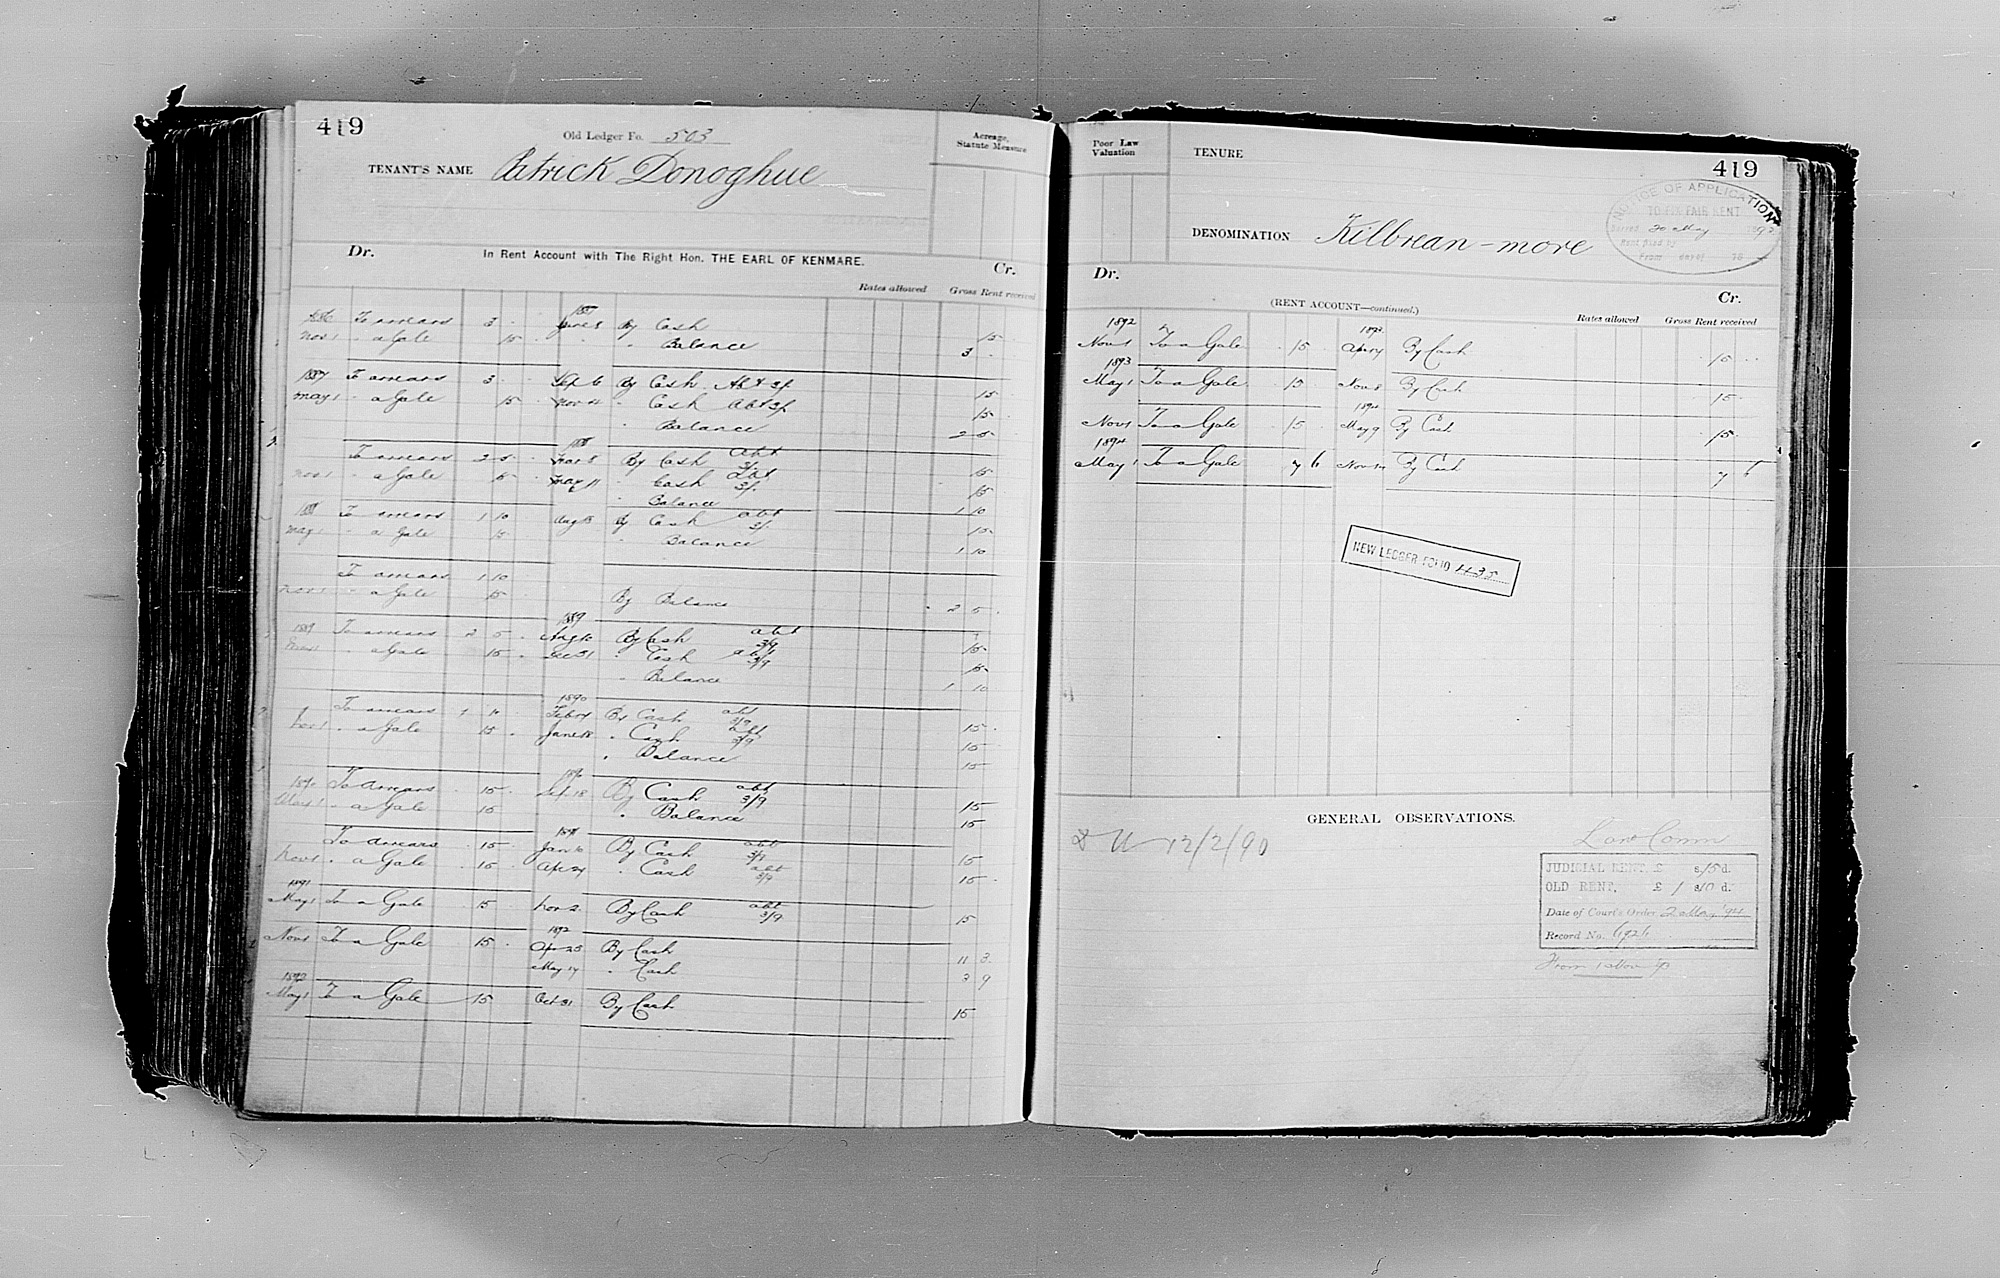 419
Old Ledger Fo. 503
TENANT'S NAME Patrick Donoghue
Acreage, Statute Measure
Dr. In Rent Account with The Right Hon. THE EARL OF KENMARE. Cr.
Rates allowed Gross Rent received
1886 To arrears 3 . 1887 June 8 By Cash 15
Nov 1 " a Gale 15 " Balance 3 .
1887 To arrears 3 . . Sep 6 By Cash Abt 3/. 15
May 1 " a Gale 15 Nov 21 " Cash Abt 3/. 15
" Balance 2 5
1888
To arrears 2 5 Mar 8 By Cash Abt 3/. 15
Nov 1 " a Gale 15 May 11 " Cash Abt 3/. 15
" Balance 1 10
1888 To arrears 1 10 Aug By Cash abt 3/. 15
May 1 " a Gale 15 " Balance 1 10
To arrears 1 10
Nov 1 " a Gale 15 By Balance 2 5
1889
1889 To arrears 2 5 Aug 10 By Cash abt 3/9 15
May 1 " a Gale 15 Dec 31 " Cash abt 3/9 15
" Balance 1 10
1890
To arrears 1 10 Feb By Cash abt 3/9 15
Nov 1 " a Gale 15 June 18 " Cash abt 3/9 15
" Balance 15
1890
1890 To arrears 15 Sep 18 By Cash abt 3/9 15
May 1 " a Gale 15 " Balance 15
1891
To arrears 15 Jan 16 By Cash abt 3/9 15
Nov 1 " a Gale 15 Apr 24 " Cash abt 3/9 15
1891
May 1 To a Gale 15 Nov 2 By Cash abt 3/9 15
1892
Nov 1 To a Gale 15 Apr 23 By Cash 11 3
May 14 " Cash 3 9
1892
May 1 To a Gale 15 Oct 31 By Cash 15
Poor Law Valuation
TENURE
419
NOTICE OF APPLICATION
TO FIX FAIR RENT
Served 20 May 1892
Rent fixed by
From day of 18
DENOMINATION Kilbrean-more
Dr. (RENT ACCOUNT—continued.) Cr.
Rates allowed Gross Rent received
1892 1893
Nov 1 To a Gale 15 Apr 14 By Cash 15
1893
May 1 To a Gale 15 Nov 8 By Cash 15
1894
Nov 1 To a Gale 15 May 9 By Cash 15
1894
May 1 To a Gale 7 6 Nov By Cash 7 6
NEW LEDGER FOLIO 435
GENERAL OBSERVATIONS.
12/2/90
Land Comn
JUDICIAL RENT, £ s/5 d.
OLD RENT, £ 1 s10 d.
Date of Court's Order 2 May '94
Record No. 6926
From 1 Nov '93